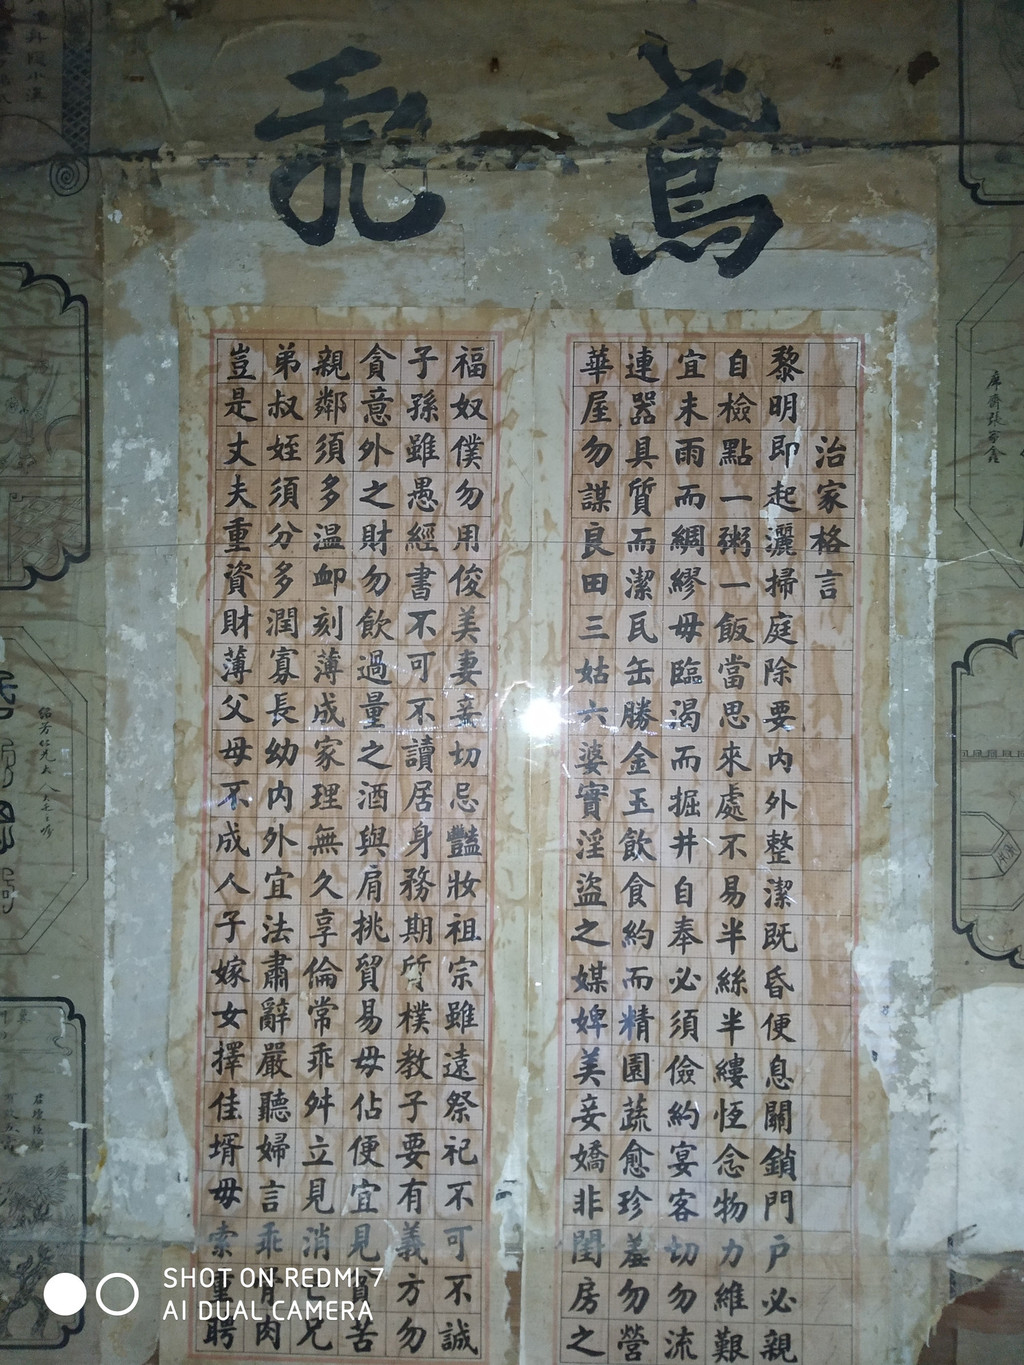 鳶
治家格言
黎明即起灑掃庭除要內外整潔既昏便息關鎖門戶必親
自檢點一粥一飯當思來處不易半絲半縷恆念物力維艱
宜未雨而綢繆毋臨渴而掘井自奉必須儉約宴客切勿流
連器具質而潔瓦缶勝金玉飲食約而精園蔬愈珍羞勿營
華屋勿謀良田三姑六婆實淫盜之媒婢美妾嬌非閨房之
福奴僕勿用俊美妻妾切忌豔妝祖宗雖遠祭祀不可不誠
子孫雖愚經書不可不讀居身務期質樸教子要有義方勿
貪意外之財勿飲過量之酒與肩挑貿易毋佔便宜見貧苦
親鄰須多温卹刻薄成家理無久享倫常乖舛立見消亡兄
弟叔姪須分多潤寡長幼內外宜法肅辭嚴聽婦言乖骨肉
豈是丈夫重資財薄父母不成人子嫁女擇佳壻毋索重聘
SHOT ON REDMI 7
AI DUAL CAMERA